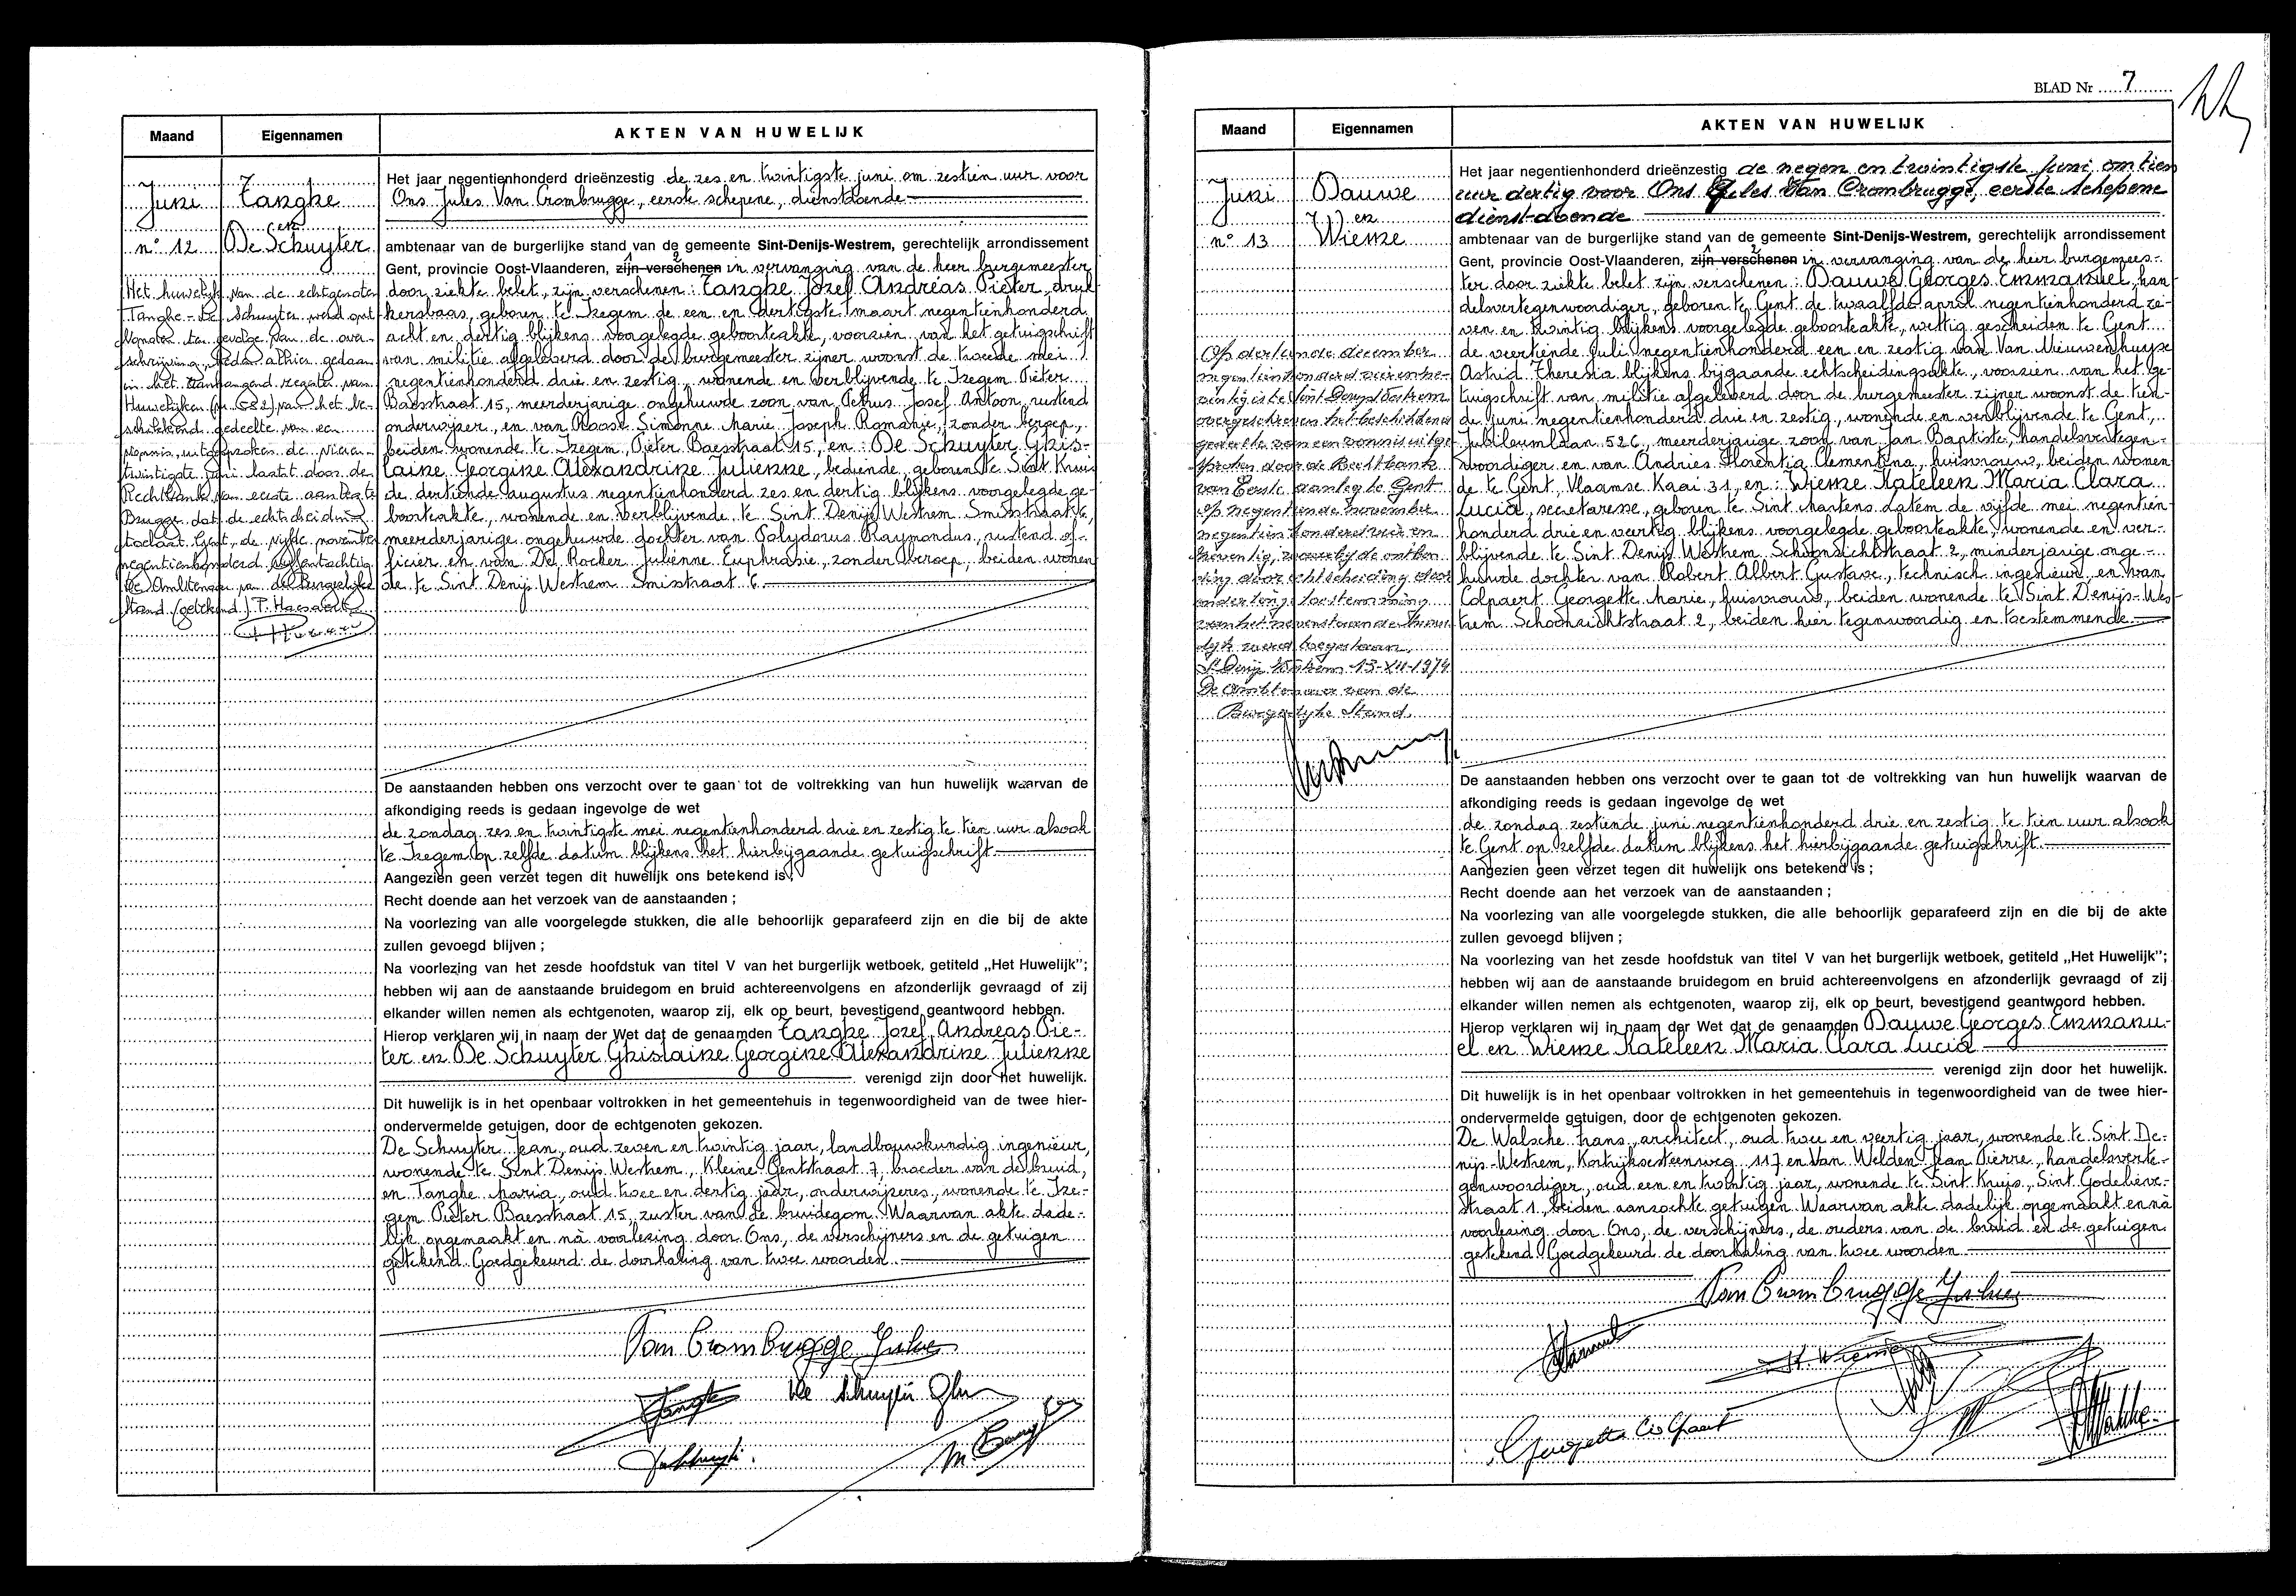 Maand
Eigennamen
AKTEN VAN HUWELIJK
Juni
n° 12
Tanghe
en
De Schuyter
Het huwelijk van de echtgenoten
Tanghe - De Schuyter werd ont
bonden ten gevolge van de over
schrijving, heden alhier gedaan
in het aanhangend register van
Huwelijken (nr 582) van het be-
schikkend gedeelte van een
vonnis, uitgesproken de vieren-
twintigste juni laatst door de
Rechtbank van eerste aanleg te
Brugge dat de echtscheiding
toelaat. Gent, de vijfde november
negentienhonderd vijfentachtig
De Ambtenaar van de Burgerlijke
Stand (getekend) J.P. Haesaert
Het jaar negentienhonderd drieënzestig de zes en twintigste juni om zestien uur voor
Ons Jules Van Crombrugge, eerste schepene, dienstdoende
ambtenaar van de burgerlijke stand van de gemeente Sint-Denijs-Westrem, gerechtelijk arrondissement
Gent, provincie Oost-Vlaanderen, zijn verschenen in vervanging van de heer burgemeester
door ziekte belet, zijn verschenen: Tanghe Jozef Andreas Pieter, druk
kersbaas, geboren te Izegem de een en dertigste maart negentienhonderd
acht en dertig blijkens voorgelegde geboorteakte, voorzien van het getuigschrift
van militie afgeleverd door de burgemeester zijner woonst de tweede mei
negentienhonderd drie en zestig, wonende en verblijvende te Izegem Pieter
Baesstraat 15, meerderjarige ongehuwde zoon van Petrus Josef Antoon, rustend
onderwijzer, en van Roose Simonne Marie Joseph Romanie, zonder beroep,
beiden wonende te Izegem, Pieter Baesstraat 15, en: De Schuyter Ghis-
laine Georgine Alexandrine Julienne, bediende, geboren te Sint Kruis
de dertiende augustus negentienhonderd zes en dertig blijkens voorgelegde ge-
boorteakte, wonende en verblijvende te Sint Denijs Westrem Smisstraat 6,
meerderjarige ongehuwde dochter van Polydorus Raymondus, rustend of-
ficier en van De Rocker Julienne Euphrasie, zonder beroep, beiden wonen
de te Sint Denijs Westrem Smisstraat 6.
De aanstaanden hebben ons verzocht over te gaan tot de voltrekking van hun huwelijk waarvan de
afkondiging reeds is gedaan ingevolge de wet
de zondag zes en twintigste mei negentienhonderd drie en zestig te tien uur alsook
te Izegem op zelfde datum blijkens het hierbijgaande getuigschrift.
Aangezien geen verzet tegen dit huwelijk ons betekend is;
Recht doende aan het verzoek van de aanstaanden;
Na voorlezing van alle voorgelegde stukken, die alle behoorlijk geparafeerd zijn en die bij de akte
zullen gevoegd blijven;
Na voorlezing van het zesde hoofdstuk van titel V van het burgerlijk wetboek, getiteld „Het Huwelijk";
hebben wij aan de aanstaande bruidegom en bruid achtereenvolgens en afzonderlijk gevraagd of zij
elkander willen nemen als echtgenoten, waarop zij, elk op beurt, bevestigend geantwoord hebben.
Hierop verklaren wij in naam der Wet dat de genaamden Tanghe Jozef Andreas Pie-
ter en De Schuyter Ghislaine Georgine Alexandrine Julienne
verenigd zijn door het huwelijk.
Dit huwelijk is in het openbaar voltrokken in het gemeentehuis in tegenwoordigheid van de twee hier-
ondervermelde getuigen, door de echtgenoten gekozen.
De Schuyter Jean, oud zeven en twintig jaar, landbouwkundig ingenieur,
wonende te Sint Denijs Westrem, Kleine Gentstraat 7, broeder van de bruid,
en Tanghe Maria, oud twee en dertig jaar, onderwijzeres, wonende te Ize-
gem Pieter Baesstraat 15, zuster van de bruidegom. Waarvan akte dade-
lijk opgemaakt en nà voorlezing door Ons, de verschijners en de getuigen
getekend. Goedgekeurd de doorhaling van twee woorden.
Van Crombrugge Jules
Tanghe De Schuyter Ghis
BLAD Nr 7
Maand
Eigennamen
AKTEN VAN HUWELIJK
Juni
n° 13
Dauwe
en
Wieme
Op dertiende december
negentienhonderd vierenze-
ventig is te Sint Denijs Westrem
overgeschreven het beschikkend
gedeelte van een vonnis uitge
sproken door de Rechtbank
van Eerste aanleg te Gent
op negentiende november
negentienhonderd vier en
zeventig, waarbij de ontbin
ding door echtscheiding door
onderlinge toestemming
van het nevenstaande huwe
lijk werd toegestaan.
St Denijs Westrem 13-XII-1974
De Ambtenaar van de
Burgerlijke Stand.
Het jaar negentienhonderd drieënzestig de negen en twintigste juni om tien
uur dertig voor Ons Jules Van Crombrugge, eerste schepene
dienst-doende
ambtenaar van de burgerlijke stand van de gemeente Sint-Denijs-Westrem, gerechtelijk arrondissement
Gent, provincie Oost-Vlaanderen, zijn verschenen in vervanging van de heer burgemees-
ter door ziekte belet zijn verschenen: Dauwe Georges Emmanuel, han
delsvertegenwoordiger, geboren te Gent de twaalfde april negentienhonderd ze-
ven en twintig blijkens voorgelegde geboorteakte, wettig gescheiden te Gent
de veertiende juli negentienhonderd een en zestig van Van Nieuwenhuyse
Astrid Theresia blijkens bijgaande echtscheidingsakte, voorzien van het ge-
tuigschrift van militie afgeleverd door de burgemeester zijner woonst de tien-
de juni negentienhonderd drie en zestig, wonende en verblijvende te Gent,
Jubileumlaan 526, meerderjarige zoon van Jan Baptiste, handelsvertegen-
woordiger en van Andries Florentia Clementina, huisvrouw, beiden wonen
de te Gent, Vlaamse Kaai 31, en: Wieme Kateleen Maria Clara
Lucia, secretaresse, geboren te Sint Martens Latem de vijfde mei negentien-
honderd drie en veertig blijkens voorgelegde geboorteakte, wonende en ver-
blijvende te Sint Denijs Westrem Schoonzichtstraat 2, minderjarige onge-
huwde dochter van Robert Albert Gustave, technisch ingenieur, en van
Colpaert Georgette Marie, huisvrouw, beiden wonende te Sint Denijs-Wes-
trem Schoonzichtstraat 2, beiden hier tegenwoordig en toestemmende.
De aanstaanden hebben ons verzocht over te gaan tot de voltrekking van hun huwelijk waarvan de
afkondiging reeds is gedaan ingevolge de wet
de zondag zestiende juni negentienhonderd drie en zestig te tien uur alsook
te Gent op zelfde datum blijkens het hierbijgaande getuigschrift.
Aangezien geen verzet tegen dit huwelijk ons betekend is;
Recht doende aan het verzoek van de aanstaanden;
Na voorlezing van alle voorgelegde stukken, die alle behoorlijk geparafeerd zijn en die bij de akte
zullen gevoegd blijven;
Na voorlezing van het zesde hoofdstuk van titel V van het burgerlijk wetboek, getiteld „Het Huwelijk";
hebben wij aan de aanstaande bruidegom en bruid achtereenvolgens en afzonderlijk gevraagd of zij
elkander willen nemen als echtgenoten, waarop zij, elk op beurt, bevestigend geantwoord hebben.
Hierop verklaren wij in naam der Wet dat de genaamden Dauwe Georges Emmanu-
el en Wieme Kateleen Maria Clara Lucia
verenigd zijn door het huwelijk.
Dit huwelijk is in het openbaar voltrokken in het gemeentehuis in tegenwoordigheid van de twee hier-
ondervermelde getuigen, door de echtgenoten gekozen.
De Walsche Frans, architect, oud twee en veertig jaar, wonende te Sint De-
nijs-Westrem, Kortrijksesteenweg 117 en Van Welden Jean Pierre, handelsverte-
genwoordiger, oud een en twintig jaar, wonende te Sint Kruis, Sint Godelieve-
straat 1, beiden aanzochte getuigen. Waarvan akte dadelijk opgemaakt en nà
voorlezing door Ons, de verschijners, de ouders van de bruid en de getuigen
getekend. Goedgekeurd de doorhaling van twee woorden.
Van Crombrugge Jules
K. Wieme
Georgette Colpaert